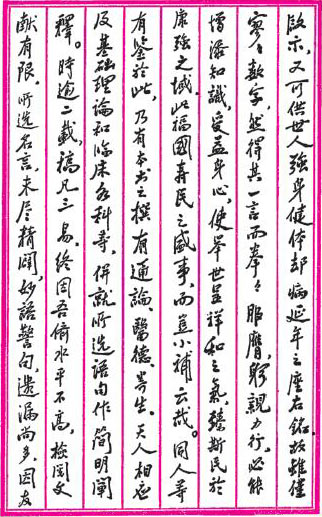 啟示，又可供世人強身健体却病延年之座右銘。故雖僅
寥々數字，然得其一言而拳々服膺，躬親力行，必能
增添知識，受益身心，使举世呈祥和之氣，臻斯民於
康強之域。此福國壽民之盛事，而豈小補云哉。同人等
有鉴於此，乃有本书之撰。有通論、醫德、养生、天人相应
及基础理論和临床各科等，併就所选語句作简明闡
釋。時逾二載，稿凡三易。终因吾儕水平不高，檢閱文
献有限，所选名言，未尽精闢，妙語警句，遺漏尚多。因友